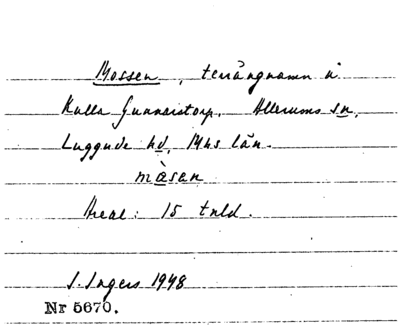 Mossen, terrängnamn i
Kulla Gunnarstorp. Allerums sn,
Luggude hd, Mhs län.
mòsan
Areal: 15 tnld.
I. Ingers 1948
Nr 5670.